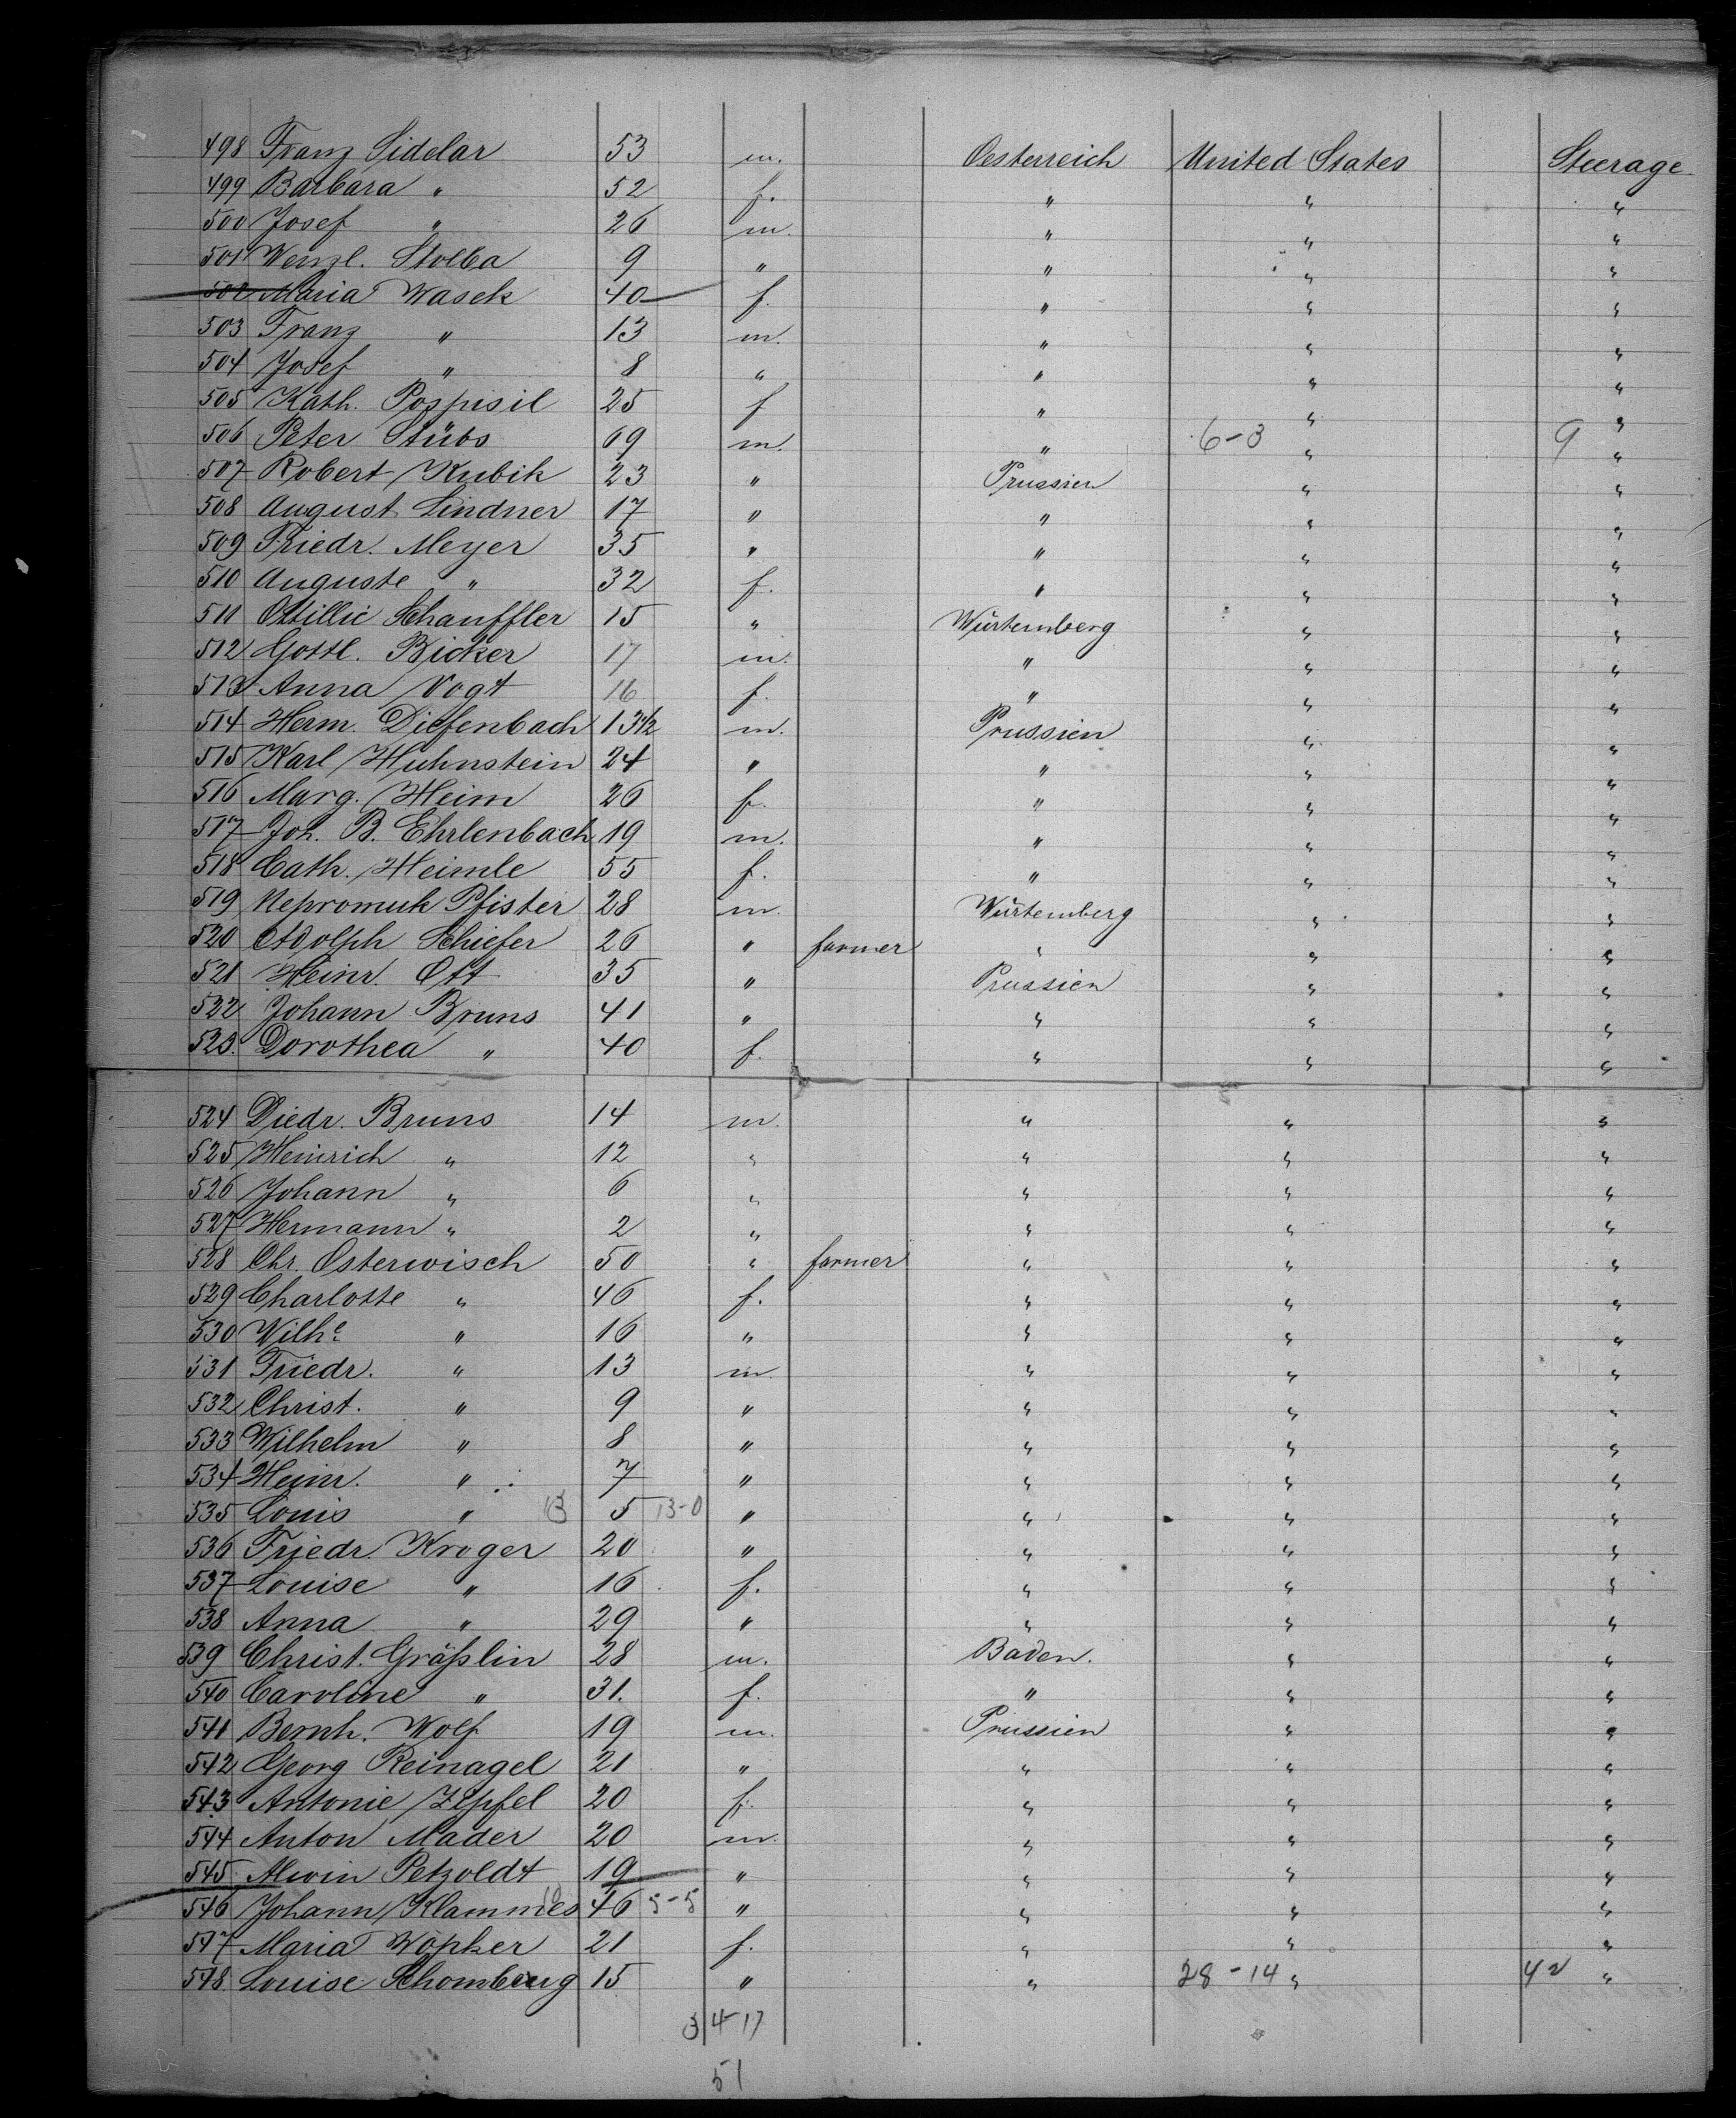 498 Franz Sidelar 53 m. Oesterreich United States Steerage
499 Barbara " 52 f. " " "
500 Josef " 26 m. " " "
501 Wenzl. Stolba 9 " " " "
502 Maria Wasek 40 f. " " "
503 Franz " 13 m. " " "
504 Josef " 8 " " " "
505 Kath. Pospisil 25 f " " "
506 Peter Stübs 69 m. " 6-3 " 9 "
507 Robert Kubik 23 " Prussien " "
508 August Lindner 17 " " " "
509 Friedr. Meyer 35 " " " "
510 Auguste " 32 f. " " "
511 Ottillie Schauffler 15 " Würtemberg " "
512 Gottl. Bicker 17 m. " " "
513 Anna Vogt 16 f. " " "
514 Herm. Diefenbach 13 1/2 m. Prussien " "
515 Karl Huhnstein 24 " " " "
516 Marg. Heim 26 f. " " "
517 Joh. B. Ehrlenbach 19 m. " " "
518 Cath. Heimle 55 f. " " "
519 Nepromuk Pfister 28 m. Würtemberg " "
520 Adolph Schiefer 26 " farmer " " "
521 Heinr. Ott 35 " Prussien " "
522 Johann Bruns 41 " " " "
523. Dorothea " 40 f. " " "
524 Diedr. Bruns 14 m. " " "
525 Heinrich " 12 " " " "
526 Johann " 6 " " " "
527 Hermann " 2 " " " "
528 Chr. Osterwisch 50 " farmer " " "
529 Charlotte " 46 f. " " "
530 Wilhe. " 16 " " " "
531 Friedr. " 13 m. " " "
532 Christ. " 9 " " " "
533 Wilhelm " 8 " " " "
534 Heinr. " 7 " " " "
535 Louis " 13 5 13-0 " " " "
536 Friedr. Kroger 20 " " " "
537 Louise " 16 f. " " "
538 Anna " 29 " " " "
539 Christ. Gräßlin 28 m. Baden. " "
540 Caroline " 31. f. " " "
541 Bernh. Wolf 19 m. Prussien " "
542 Georg Reinagel 21 " " " "
543 Antonie Zepfel 20 f. " " "
544 Anton Mader 20 m. " " "
545 Alwin Petzoldt 19 " " " "
546 Johann Klammes 10 46 5-5 " " " "
547 Maria Wopker 21 f. " " "
548. Louise Schomburg 15 " " 28-14 " 42 "
34-17
51